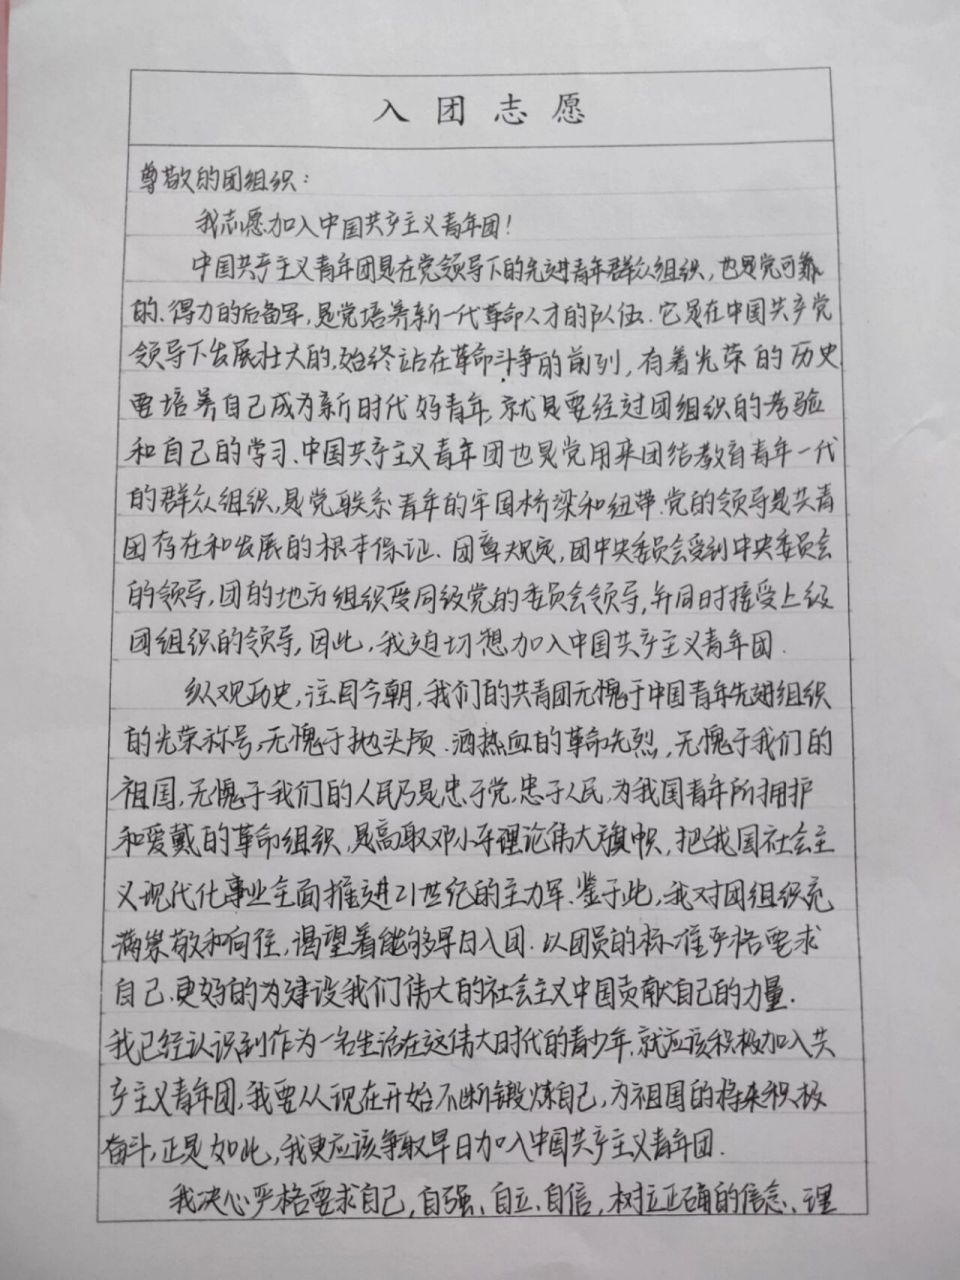 入团志愿
尊敬的团组织：
我志愿加入中国共产主义青年团！
中国共产主义青年团是在党领导下的先进青年群众组织，也是党可靠
的、得力的后备军，是党培养新一代革命人才的队伍．它是在中国共产党
领导下发展壮大的，始终站在革命斗争的前列，有着光荣的历史
要培养自己成为新时代好青年，就是要经过团组织的考验
和自己的学习、中国共产主义青年团也是党用来团结教育青年一代
的群众组织，是党联系青年的牢固桥梁和纽带．党的领导是共青
团存在和发展的根本保证．团章规定，团中央委员会受到中央委员会
的领导，团的地方组织受同级党的委员会领导，并同时接受上级
团组织的领导，因此，我迫切想加入中国共产主义青年团．
纵观历史，注目今朝，我们的共青团无愧于中国青年先进组织
的光荣称号，无愧于抛头颅、洒热血的革命先烈，无愧于我们的
祖国，无愧于我们的人民乃是忠于党，忠于人民，为我国青年所拥护
和爱戴的革命组织，是高取邓小平理论伟大旗帜，把我国社会主
义现代化事业全面推进21世纪的主力军．鉴于此，我对团组织充
满崇敬和向往，渴望着能够早日入团．以团员的标准严格要求
自己、更好的为建设我们伟大的社会主义中国贡献自己的力量．
我已经认识到作为一名生活在这伟大时代的青少年，就应该积极加入共
产主义青年团，我要从现在开始不断锻炼自己，为祖国的将来积极
奋斗，正是如此，我更应该争取早日加入中国共产主义青年团．
我决心严格要求自己，自强、自立、自信，树立正确的信念、理